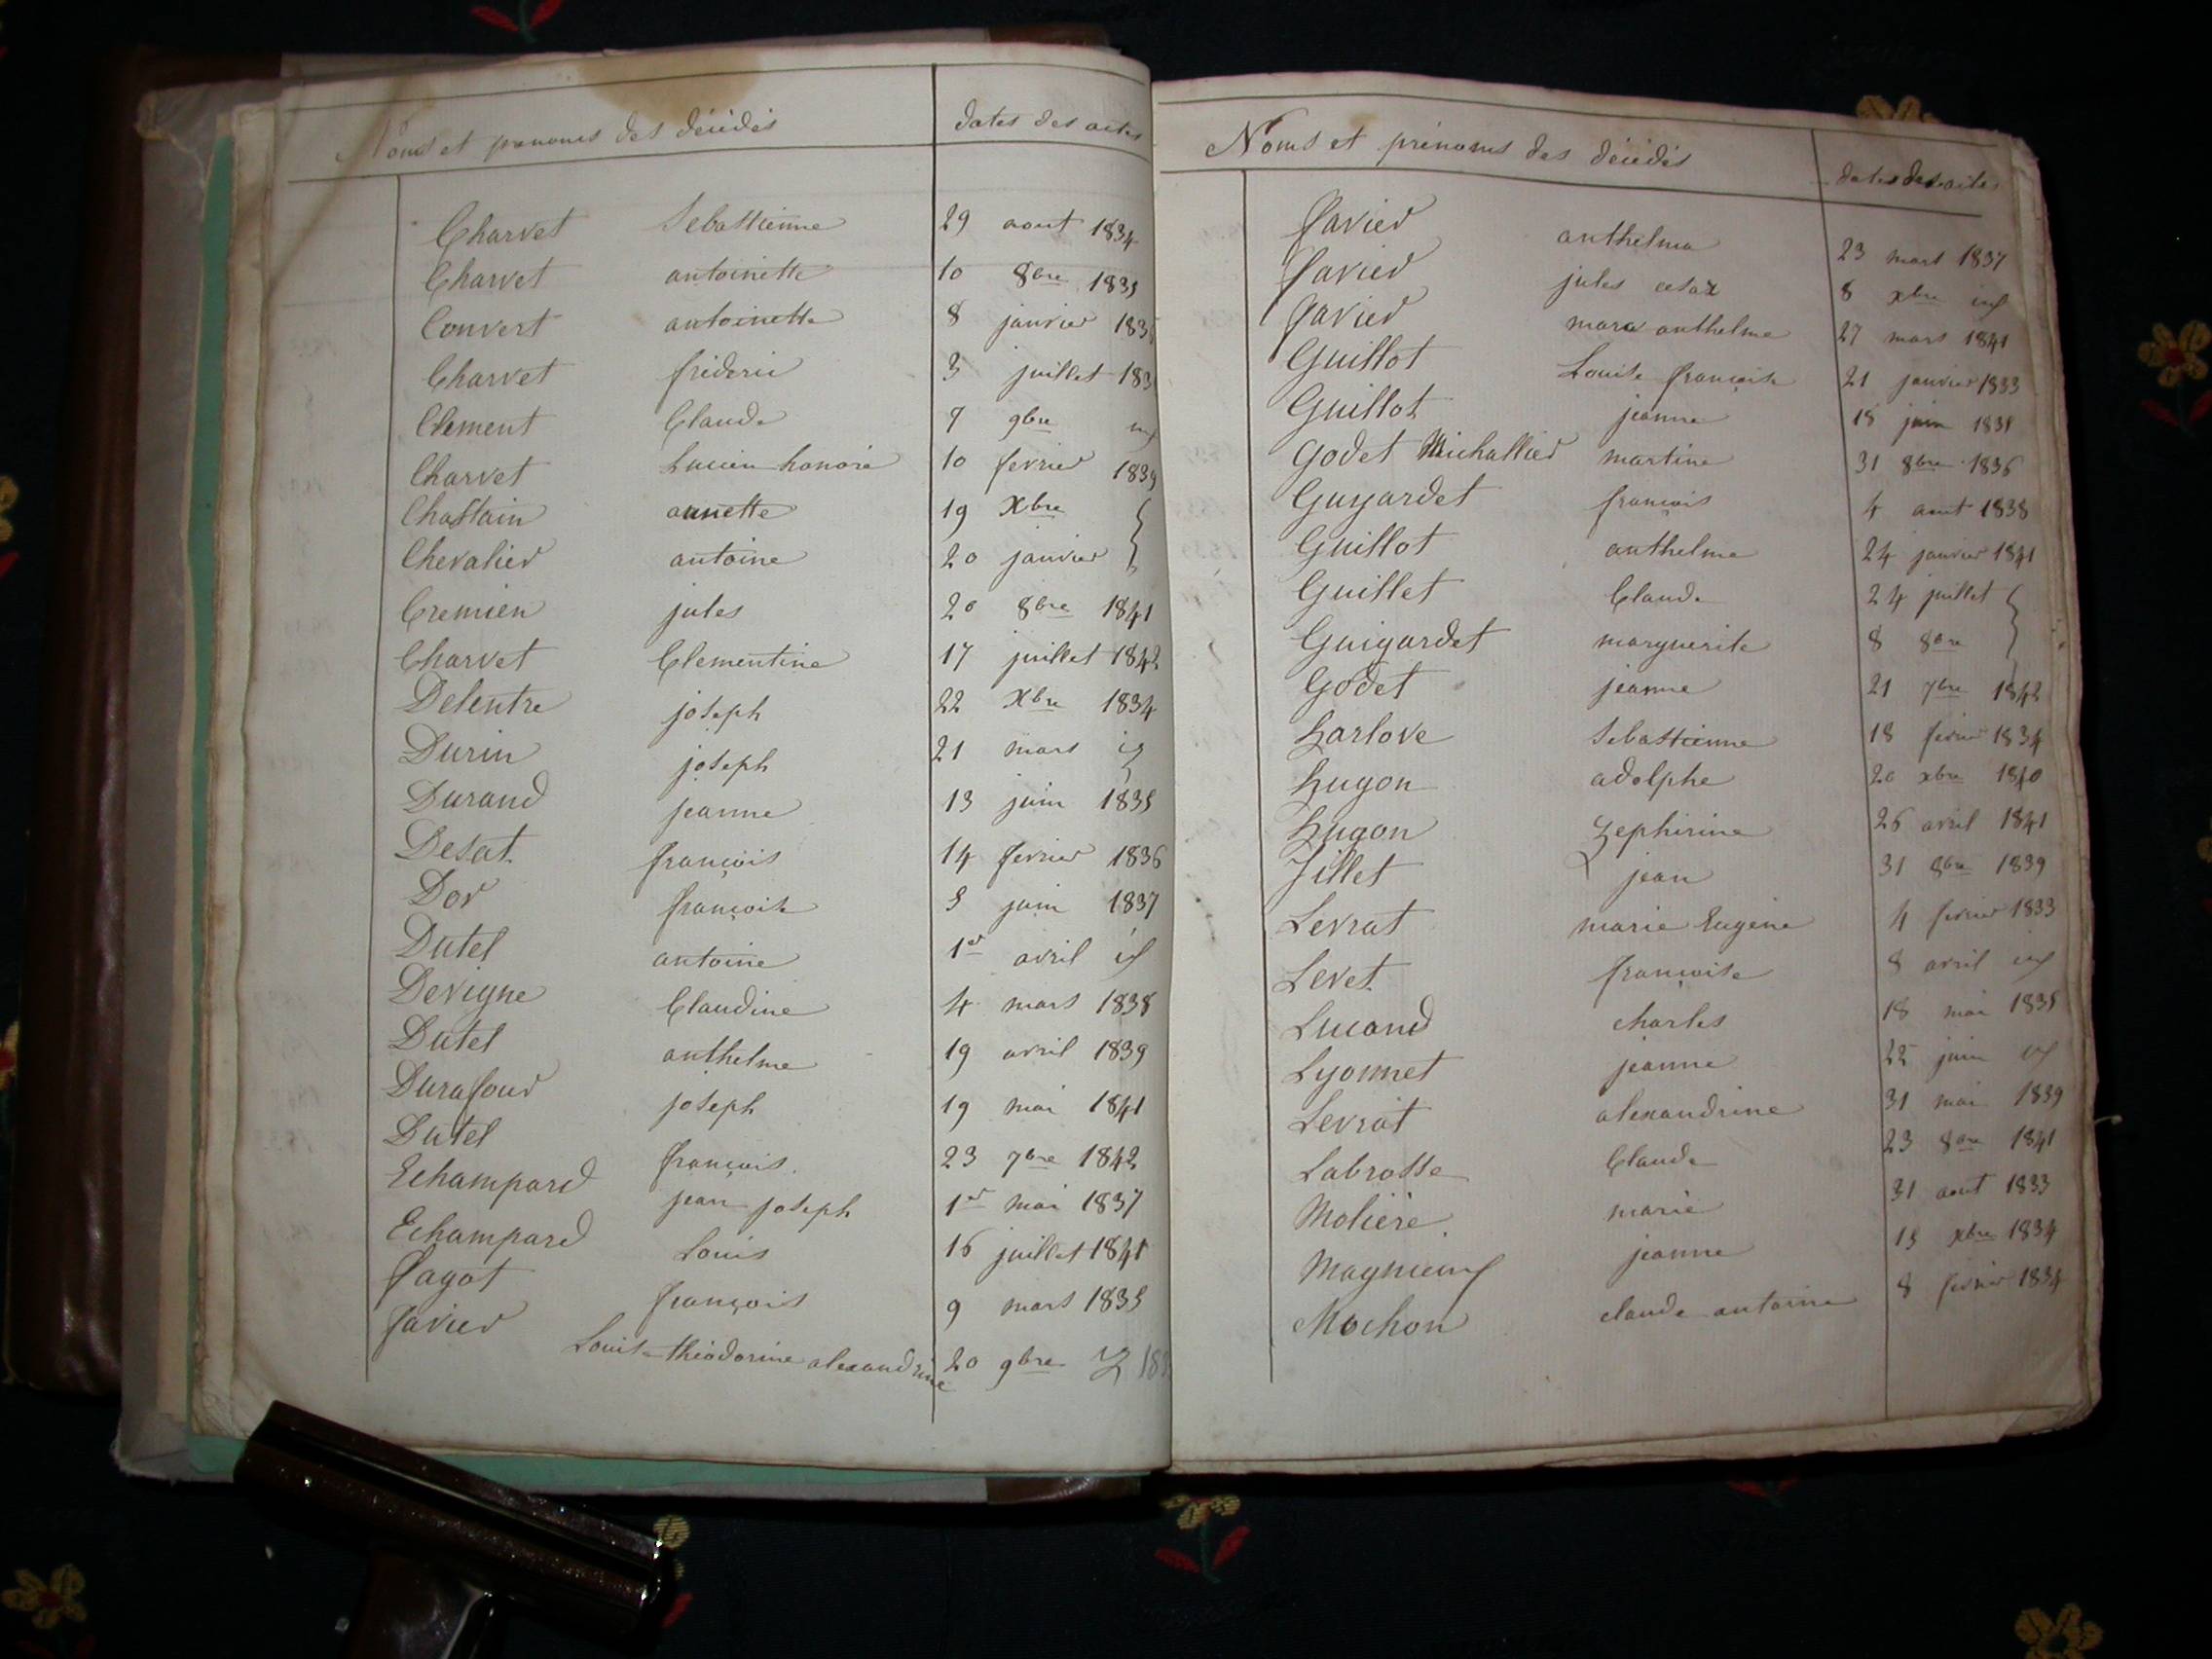 Noms et prenoms des décédés dates des actes
Charvet Sebastienne 29 aout 1834
Charvet antoinette 10 8bre 1835
Convert antoinette 8 janvier 183
Charvet fréderic 3 juillet 183
Clement Claude 7 9bre
Charvet Lucien honoré 10 fevrier 1839
Chastain annette 19 Xbre
Chevalier antoine 20 janvier
Cremien jules 20 8bre 1841
Charvet Clementine 17 juillet 1842
Delentre joseph 22 Xbre 1834
Durin joseph 21 mars
Durand jeanne 13 juin 1835
Desat françois 14 fevrier 1836
Dor françoise 5 juin 1837
Dutel antoine 1er avril id
Devigne Claudine 4 mars 1838
Dutel anthelme 19 avril 1839
Durafour joseph 19 mai 1841
Dutel françois 23 7bre 1842
Echampard jean joseph 1er mai 1837
Echampard Louis 16 juillet 1841
fagot françois 9 mars 1835
favier Louise théodorine alexandrine 20 9bre 183
Noms et prénoms des décédés dates des actes
favier anthelma 23 mars 1837
favier jules cesar 8 xbre id
favier marx anthelme 27 mars 1841
Guillot Louise françoise 21 janvier 1833
Guillot jeanne 15 juin 1835
Godet Michallier martine 31 8bre 1836
Guyardet françois 4 aout 1838
Guillot anthelme 24 janvier 1841
Guillet Claude 24 juillet
Guigardet marguerite 8 8bre
Godet jeanne 21 7bre 1842
harlove Sebastienne 18 fevrier 1834
hugon adolphe 20 xbre 1840
hugon Zephirine 26 avril 1841
Jillet jean 31 8bre 1839
Levrat marie Eugene 4 fevrier 1833
Levet françoise 8 avril id
Lucand charles 18 mai 1835
Lyonnet jeanne 22 juin id
Levrat alexandrine 31 mai 1839
Labrosse Claude 23 8bre 1841
Molière marie 31 aout 1833
jeanne 15 xbre 1834
Mochon claude antoine 8 fevrier 1834